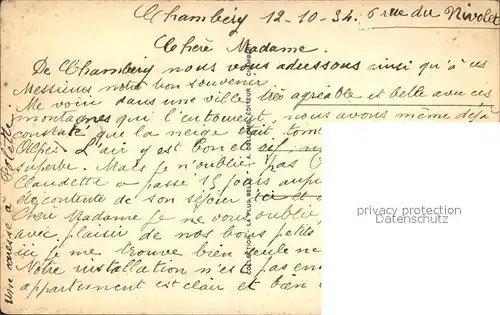 Chambéry 12-10-34. 6 rue du Nivolet
Chère Madame.
De Chambéry nous vous adressons ainsi qu'à ces
Messieurs notre bon souvenir.
Me voici dans une ville très agréable et belle avec ces
montagnes qui l'entourent, nous avons même déjà
constaté que la neige était tom
Alpes. L'air y est bon et
superbe. Mais je n'oublie pas
Claudette a passé 15 jours aup
de son séjour
Chère Madame je ne vous oublie
avec plaisir de nos bons petits
ici je me trouve bien seule ne
Notre installation n'est pas en
appartement est clair et bien
Une caresse à
privacy protection
Datenschutz